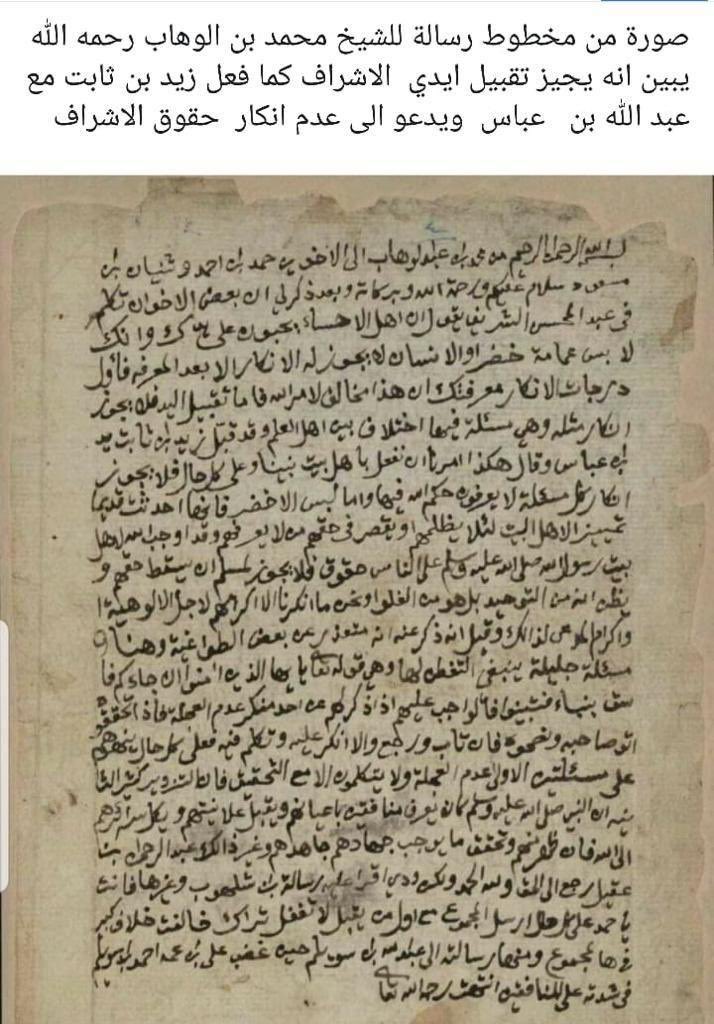 صورة من مخطوط رسالة للشيخ محمد بن الوهاب رحمه الله
يبين انه يجيز تقبيل ايدي الاشراف كما فعل زيد بن ثابت مع
عبد الله بن عباس ويدعو الى عدم انكار حقوق الاشراف
بسم الله الرحمن الرحيم من محمد بن عبد الوهاب الى الاخوين حمد بن احمد وثنيان بن
سعود سلام عليكم ورحمة الله وبركاته وبعد ذكر لي ان بعض الاخوان تكلم
في عبد المحسن الشريف يقول ان اهل الاحساء يحبون على يدك وانك
لابس عمامة خضرا والانسان لا يجوز له الانكار الا بعد المعرفه فأول
درجات الانكار معرفتك ان هذا مخالف لامر الله فاما تقبيل اليد فلا يجوز
انكار مثله وهي مسئلة فيها اختلاف بين اهل العلم وقد قبل زيد بن ثابت يد
بن عباس وقال هكذا امرنا ان نفعل باهل بيت نبينا وعلى كل حال فلا يجوز
انكار كل مسئلة لا يعرفون حكم الله فيها واما لبس الاخضر فانها احدثت قديما
تمييز الاهل البيت لئلا يظلمهم او يقصر في حقهم من لا يعرفهم وقد اوجب الله لاهل
بيت رسول الله صلى الله عليه وسلم على الناس حقوق فلا يجوز لمسلم ان يسقط حقهم و
يظن انه من التوحيد بل هو من الغلو ونحن ما انكرنا الا اكرامهم لاجل الالوهية
واكرام المدعي لذالك وقيل انه ذكر عنه انه معتذر عن بعض الطواغية وهنا
مسئلة جليلة ينبغي التفطن لها وهي قوله تعا يا ايها الذين امنوا ان جاءكم فا
سق بنباء فتبينوا فالواجب عليهم اذا ذكر لهم عن احد منكر عدم العجلة فاذا تحققوه
اتو صاحبه ونصحوه فان تاب ورجع والا انكر عليه وتكلم فيه فعلى كل حال ينبهوهم
على مسئلتين الاولى عدم العجلة ولا يتكلمون الا مع التحقيق فان التزوير كثير الثا
نيه ان النبي صلى الله عليه وسلم كان يعرف منافقين باعيانهم ويقبل علانيتهم ويكل سرائرهم
الى الله فان ظهر منهم وتحقق ما يوجب جهادهم جاهدهم وغير ذالك عبد الرحمن بن
عقيل رجع الى الحق ولله الحمد ولكن ودي اقرا عليه رسالة بن شلهوب وغيرها فانت
يا حمد على كل حال ارسل المجموع مع اول من يقبل لا تغفل تراك خالفت خلاف كبير
في المجموع ومنها رسالته الى عبد الله بن سويلم حين غضب على بن عمه احمد بن سويلم
في شدته على المنافقين انتهت رحمه الله تعا